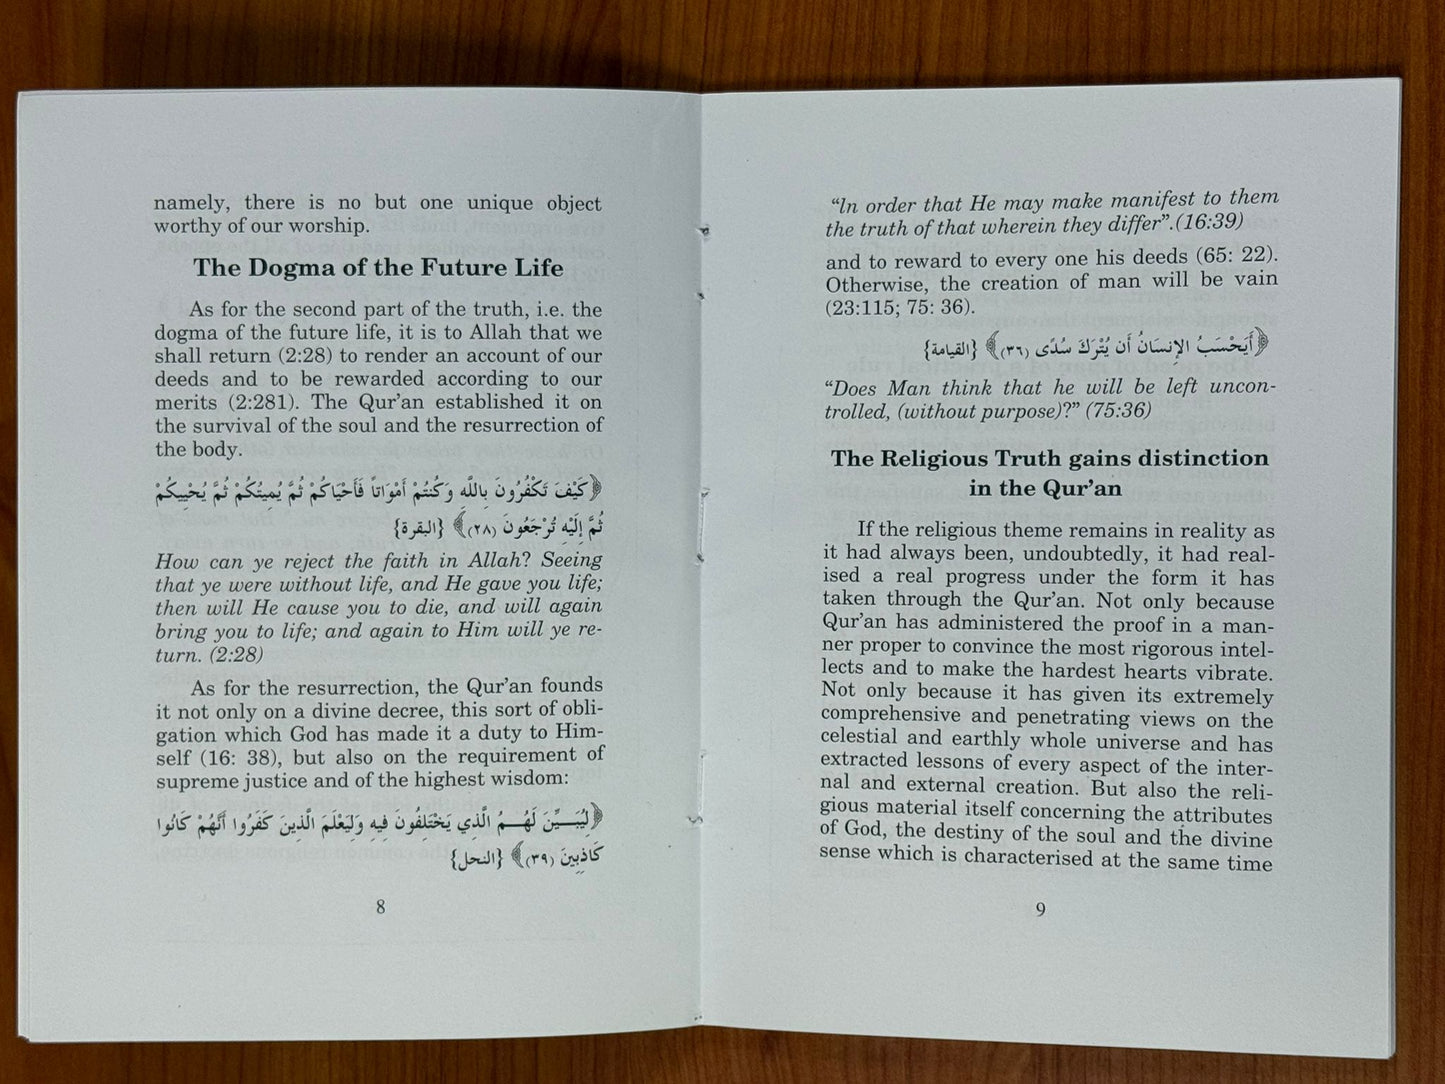 namely, there is no but one unique object
worthy of our worship.
The Dogma of the Future Life
As for the second part of the truth, i.e. the
dogma of the future life, it is to Allah that we
shall return (2:28) to render an account of our
deeds and to be rewarded according to our
merits (2:281). The Qur'an established it on
the survival of the soul and the resurrection of
the body.
﴿كَيْفَ تَكْفُرُونَ بِاللَّهِ وَكُنتُمْ أَمْوَاتاً فَأَحْيَاكُمْ ثُمَّ يُمِيتُكُمْ ثُمَّ يُحْيِيكُمْ
ثُمَّ إِلَيْهِ تُرْجَعُونَ (٢٨)﴾ {البقرة}
How can ye reject the faith in Allah? Seeing
that ye were without life, and He gave you life;
then will He cause you to die, and will again
bring you to life; and again to Him will ye re-
turn. (2:28)
As for the resurrection, the Qur'an founds
it not only on a divine decree, this sort of obli-
gation which God has made it a duty to Him-
self (16: 38), but also on the requirement of
supreme justice and of the highest wisdom:
﴿لِيُبَـــيِّنَ لَهُـــمُ الَّذِي يَخْتَلِفُونَ فِيهِ وَلِيَعْلَمَ الَّذِينَ كَفَرُوا أَنَّهُمْ كَانُوا
كَاذِبِينَ (٣٩)﴾ {النحل}
8
"In order that He may make manifest to them
the truth of that wherein they differ".(16:39)
and to reward to every one his deeds (65: 22).
Otherwise, the creation of man will be vain
(23:115; 75: 36).
﴿أَيَحْسَبُ الإِنسَانُ أَن يُتْرَكَ سُدًى (٣٦)﴾ {القيامة}
"Does Man think that he will be left uncon-
trolled, (without purpose)?" (75:36)
The Religious Truth gains distinction
in the Qur'an
If the religious theme remains in reality as
it had always been, undoubtedly, it had real-
ised a real progress under the form it has
taken through the Qur'an. Not only because
Qur'an has administered the proof in a man-
ner proper to convince the most rigorous intel-
lects and to make the hardest hearts vibrate.
Not only because it has given its extremely
comprehensive and penetrating views on the
celestial and earthly whole universe and has
extracted lessons of every aspect of the inter-
nal and external creation. But also the reli-
gious material itself concerning the attributes
of God, the destiny of the soul and the divine
sense which is characterised at the same time
9